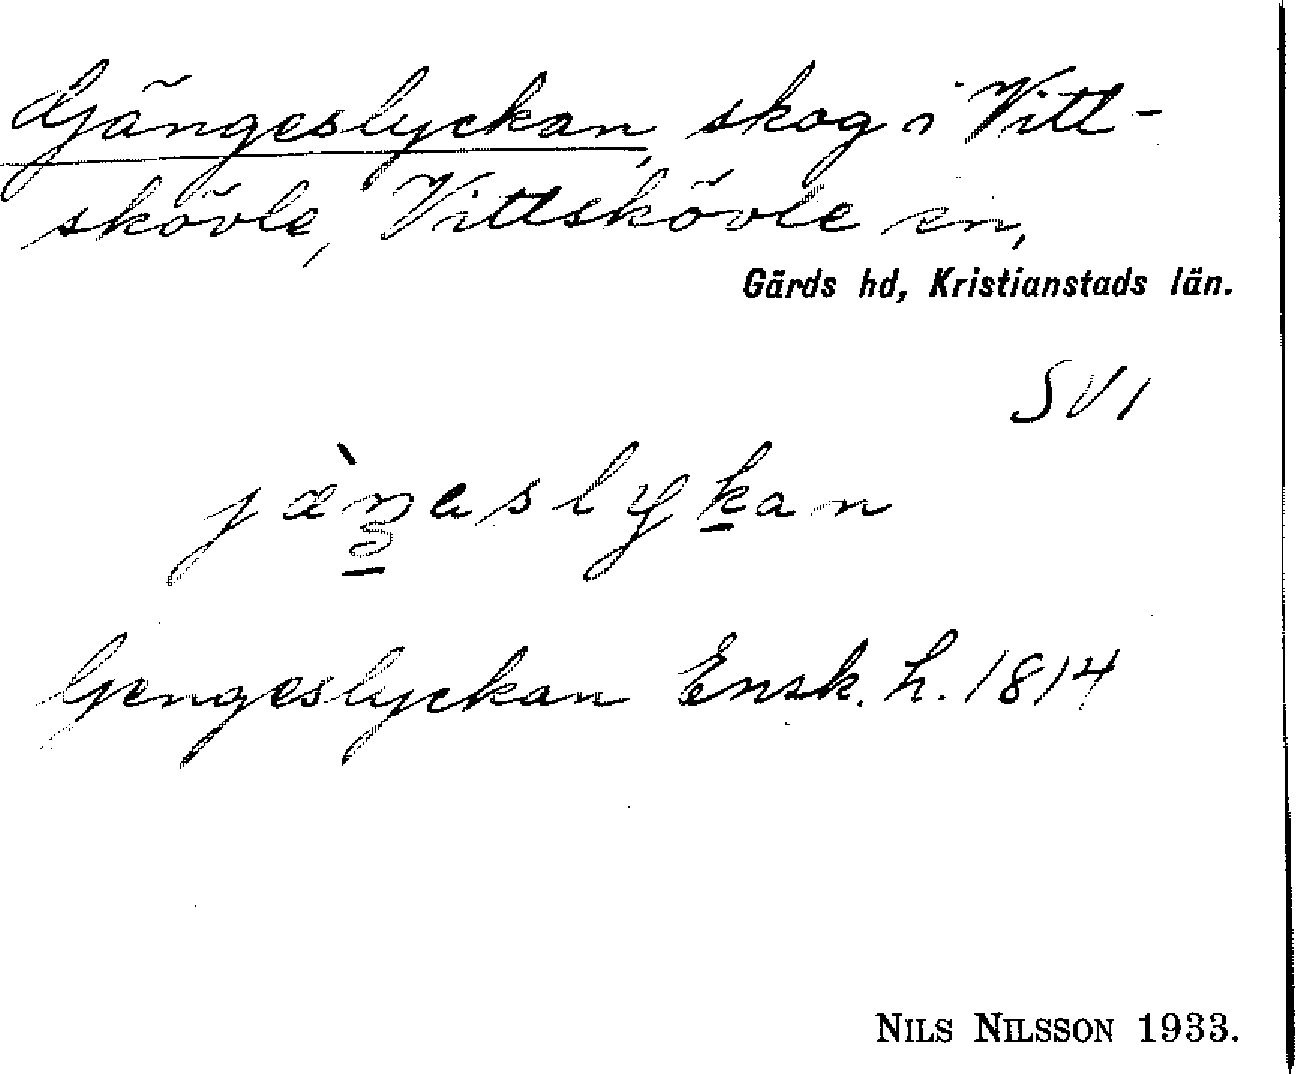 Gängeslyckan, skog i Vitt-
skövle, Vittskövle sn,
Gärds hd, Kristianstads län.
SV1
jæ̀ŋaslykan
Gengeslyckan Ensk. h. 1814
NILS NILSSON 1933.